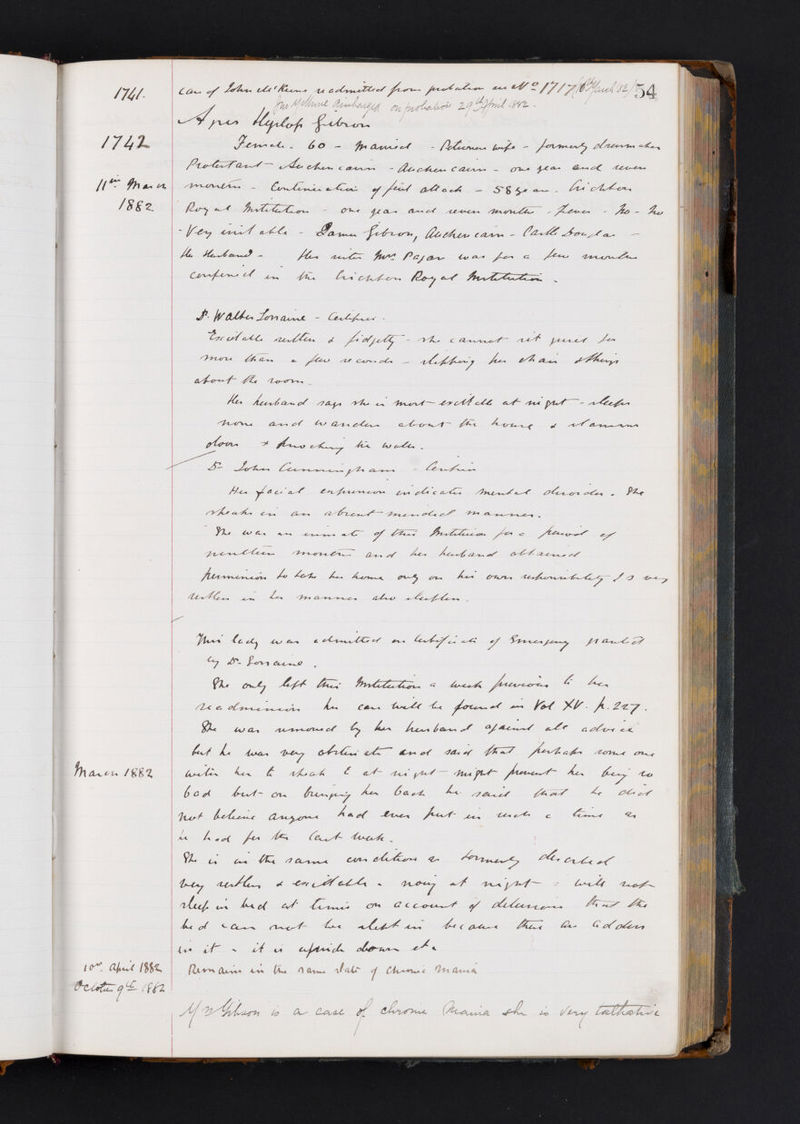 54
1741. case of John McKune readmitted from probation see No 1717 March 82
John McKune discharged on probation 29th April 1882.
Agnes Hyslop Gibson
1742 Female - 60 - Married - wife - formerly dressmaker
Protestant - Auchencairn - Auchencairn - one year and seven
11th March months - Continuation of first attack - 58 years. Crichton
1882 Royal Institution - one year and seven months - Fever - No - No
- Very excitable - James Gibson, Auchencairn - Castle Douglas -
Her Husband - Her sister Mrs Pagan was for a few months
confined in the Crichton Royal Institution.
Dr. Walter Lorraine - Certifies.
Excitable restless & fidgetty - she cannot sit quiet for
more than a few seconds - shifting her chair & things
about the room.
Her husband says she is most excitable at night - sleeps
none and wanders about the house & slamming
doors & knocking the walls.
Dr John Cunningham Certifies
Her facial expression indicates mental disorder. She
speaks in an absent minded manner.
She was an inmate of this Institution for a period of
nineteen months and her husband obtained
permission to take her home only on his own responsibility Is very
restless in her manner also sleepless.
This lady was admitted on Certificate of Emergency granted
by Dr Lorraine.
She only left this Institution a week previous to her
readmission her case will be found in Vol XV. p. 227.
She was removed by her husband against all advice
but he was very obstinate and said that perhaps some one
March 1882 with her to speak to at night might prevent her being so
bad but on bringing her back he said that he did
not believe anyone had ever put in such a time as
he had for the last week.
She is in the same condition as formerly described
very restless & excitable - noisy at night - will not
sleep in bed at times on account of delusions that the
bed can not be slept in because there are adders
in it - it is upside down etc
10th April 1882 Remains in the same state of chronic mania
October 9th 1882
Mrs Gibson is a case of chronic Mania she is very talkative